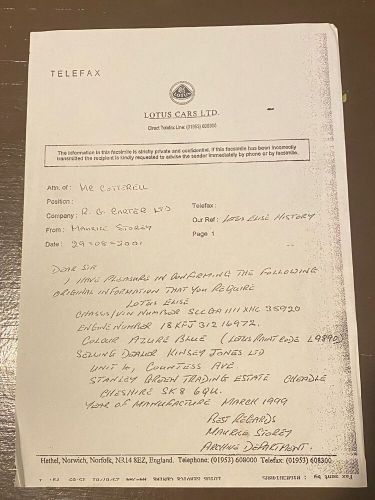 TELEFAX
LOTUS
LOTUS CARS LTD.
Direct Telefax Line: (01953) 608300
The information in this facsimile is strictly private and confidential. If this facsimile has been incorrectly
transmitted the recipient is kindly requested to advise the sender immediately by phone or by facsimile.
Attn. of: MR COTTERELL
Position:
Company: R. G. CARTER LTD
Telefax:
From: MAURICE STOREY
Our Ref: LOTUS ELISE HISTORY
Date: 29-08-2001
Page 1
DEAR SIR
I HAVE PLEASURE IN CONFIRMING THE FOLLOWING
ORIGINAL INFORMATION THAT YOU REQUIRE
LOTUS ELISE
CHASSIS/VIN NUMBER SCCGA1111XHC 35920
ENGINE NUMBER 18KFJ31216972.
COLOUR AZURE BLUE (LOTUS PAINT CODE L9890)
SELLING DEALER KINSEY JONES LTD
UNIT 6, COUNTESS AVE
STANLEY GREEN TRADING ESTATE CHEADLE
CHESHIRE SK8 6QU.
YEAR OF MANUFACTURE MARCH 1999
BEST REGARDS
MAURICE STOREY
ARCHIVE DEPARTMENT.
Hethel, Norwich, Norfolk, NR14 8EZ, England. Telephone: (01953) 608000 Telefax: (01953) 608300
Fax sent by :